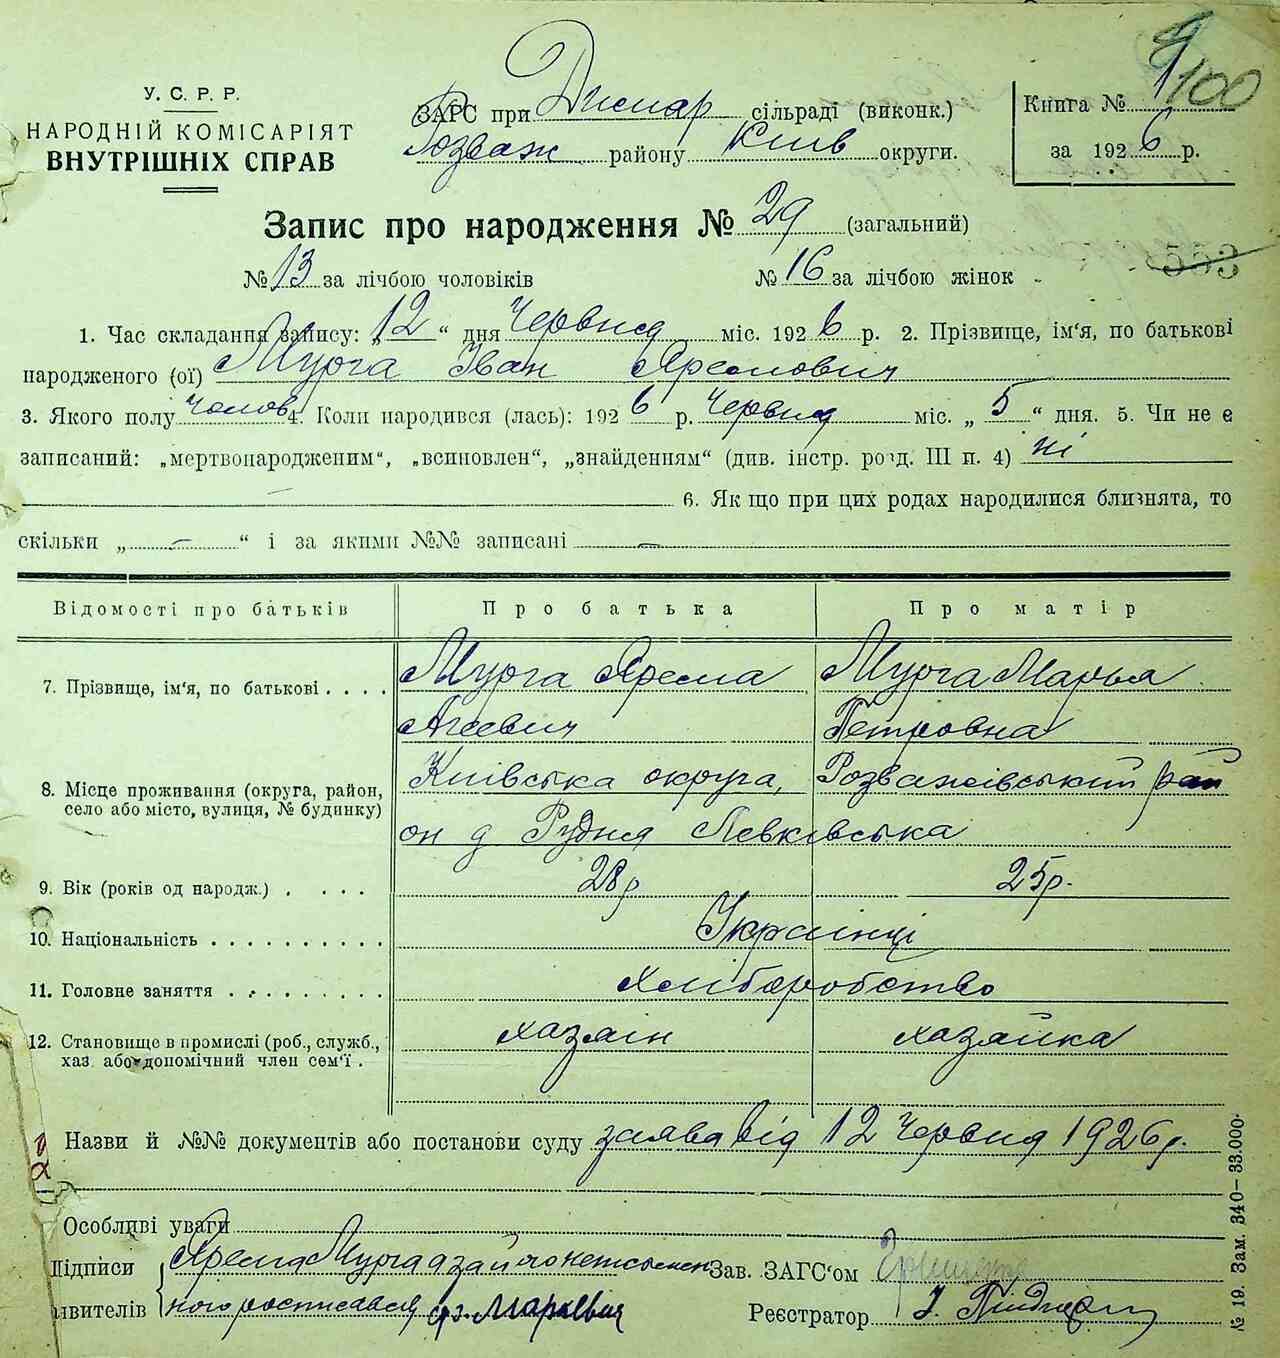 У. С. Р. Р.
НАРОДНІЙ КОМІСАРІЯТ
ВНУТРІШНІХ СПРАВ
ЗАГС при Димар сільраді (виконк.)
Розваж району Київ округи.
Книга №
100
за 1926 р.
Запис про народження № 29 (загальний)
563
№ 13 за лічбою чоловіків № 16 за лічбою жінок
1. Час складання запису: „12“ дня Червня міс. 1926 р. 2. Прізвище, ім‘я, по батькові
народженого (ої) Мурга Іван Яремович
3. Якого полу Чолов 4. Коли народився (лась): 1926 р. Червня міс. „5“ дня. 5. Чи не є
записаний: „мертвонародженим“, „всиновлен“, „знайденням“ (див. інстр. розд. III п. 4) ні
6. Як що при цих родах народилися близнята, то
скільки „ – “ і за якими №№ записані –
Відомості про батьків Про батька Про матір
7. Прізвище, ім‘я, по батькові . . . . Мурга Ярема Мурга Марья
Агеевич Петровна
8. Місце проживання (округа, район, село або місто, вулиця, № будинку) Київська округа, Розважівський рай
он д Рудня Левківська
9. Вік (років од народж.) . . . . 28р 25р.
10. Національність . . . . . . . . . . Українці
11. Головне заняття . . . . . . . . . Хліборобство
12. Становище в промислі (роб., служб., хазаін хазайка
хаз. або допомічний член сем‘ї .
Назви й №№ документів або постанови суду заява від 12 Червня 1926р.
Особливі уваги
Підписи Ярема Мурга а за него неписьмен Зав. ЗАГС‘ом
явителів ного росписався Маркевич Реєстратор
№ 19. Зам. 340–33.000.